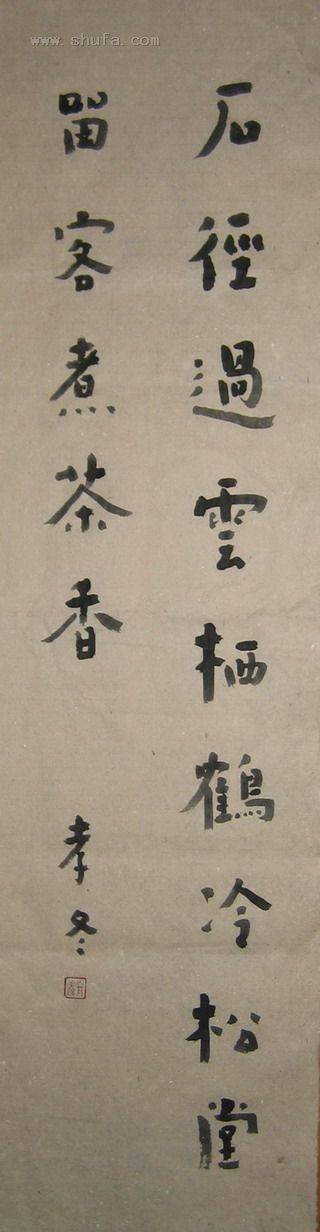 www.shufa.com
石徑過雲栖鶴冷松堂
留客煮茶香
孝冬